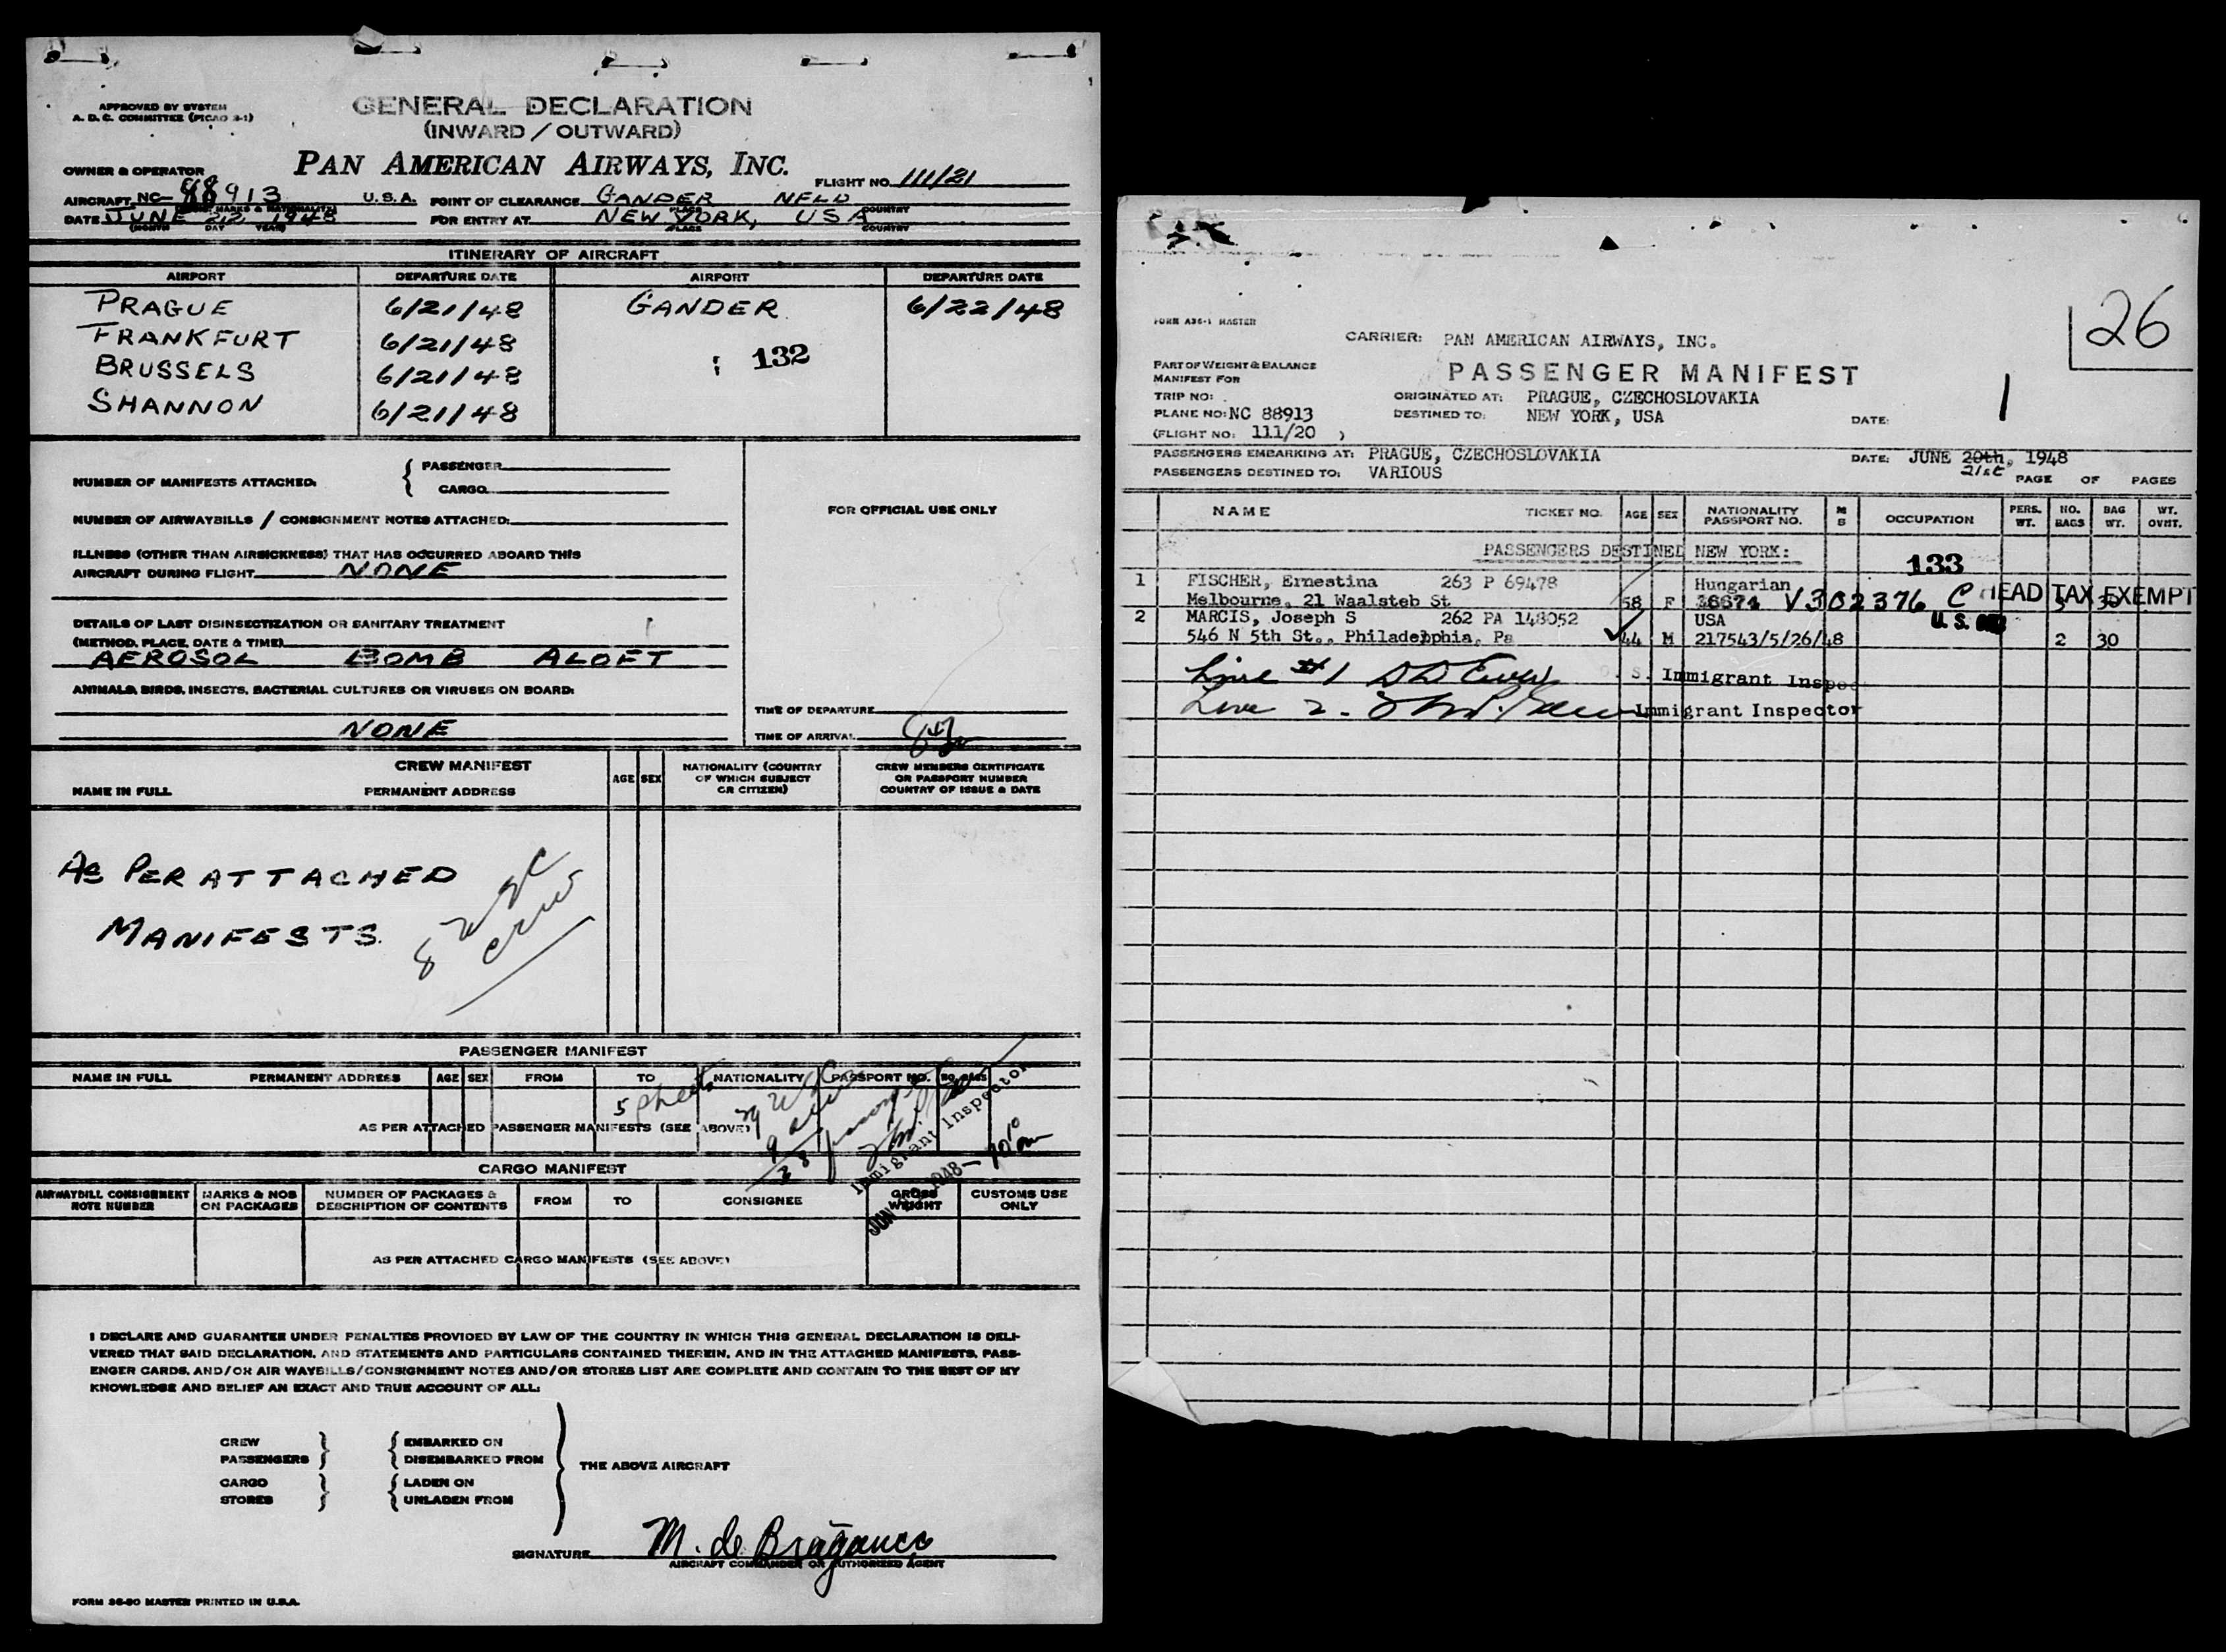 APPROVED BY SYSTEM
A. D. C. COMMITTEE (PICAO 2-1)
GENERAL DECLARATION
(INWARD / OUTWARD)
OWNER & OPERATOR PAN AMERICAN AIRWAYS, INC. FLIGHT NO. 111/21
AIRCRAFT NC- 88913 U.S.A. POINT OF CLEARANCE GANDER NFLD
(MARKS & NATIONALITY) PLACE COUNTRY
DATE JUNE 22 1948 FOR ENTRY AT NEW YORK, USA
(MONTH DAY YEAR) PLACE COUNTRY
ITINERARY OF AIRCRAFT
AIRPORT DEPARTURE DATE AIRPORT DEPARTURE DATE
PRAGUE 6/21/48 GANDER 6/22/48
FRANKFURT 6/21/48
132
BRUSSELS 6/21/48
SHANNON 6/21/48
NUMBER OF MANIFESTS ATTACHED: { PASSENGER
CARGO
NUMBER OF AIRWAYBILLS / CONSIGNMENT NOTES ATTACHED:
FOR OFFICIAL USE ONLY
ILLNESS (OTHER THAN AIRSICKNESS) THAT HAS OCCURRED ABOARD THIS
AIRCRAFT DURING FLIGHT NONE
DETAILS OF LAST DISINSECTIZATION OR SANITARY TREATMENT
(METHOD, PLACE, DATE & TIME)
AEROSOL BOMB ALOFT
ANIMALS, BIRDS, INSECTS, BACTERIAL CULTURES OR VIRUSES ON BOARD:
NONE
TIME OF DEPARTURE
TIME OF ARRIVAL
CREW MANIFEST
NAME IN FULL PERMANENT ADDRESS
AGE SEX
NATIONALITY (COUNTRY
OF WHICH SUBJECT
OR CITIZEN)
CREW MEMBERS CERTIFICATE
OR PASSPORT NUMBER
COUNTRY OF ISSUE & DATE
AS PER ATTACHED
MANIFESTS.
8 USC
crew
PASSENGER MANIFEST
NAME IN FULL PERMANENT ADDRESS AGE SEX FROM TO NATIONALITY PASSPORT NO. NO. BAGS
5 sheets
AS PER ATTACHED PASSENGER MANIFESTS (SEE ABOVE)
Immigrant Inspector
CARGO MANIFEST
AIRWAYBILL CONSIGNMENT
NOTE NUMBER
MARKS & NOS
ON PACKAGES
NUMBER OF PACKAGES &
DESCRIPTION OF CONTENTS
FROM TO CONSIGNEE
GROSS
WEIGHT
CUSTOMS USE
ONLY
AS PER ATTACHED CARGO MANIFESTS (SEE ABOVE)
I DECLARE AND GUARANTEE UNDER PENALTIES PROVIDED BY LAW OF THE COUNTRY IN WHICH THIS GENERAL DECLARATION IS DELI-
VERED THAT SAID DECLARATION, AND STATEMENTS AND PARTICULARS CONTAINED THEREIN, AND IN THE ATTACHED MANIFESTS, PASS-
ENGER CARDS, AND/OR AIR WAYBILLS/CONSIGNMENT NOTES AND/OR STORES LIST ARE COMPLETE AND CONTAIN TO THE BEST OF MY
KNOWLEDGE AND BELIEF AN EXACT AND TRUE ACCOUNT OF ALL:
CREW EMBARKED ON
PASSENGERS DISEMBARKED FROM
THE ABOVE AIRCRAFT
CARGO LADEN ON
STORES UNLADEN FROM
SIGNATURE M. de Braganca
AIRCRAFT COMMANDER OR AUTHORIZED AGENT
FORM 36-80 MASTER PRINTED IN U.S.A.
26
FORM A36-1 MASTER
CARRIER: PAN AMERICAN AIRWAYS, INC.
PART OF WEIGHT & BALANCE
MANIFEST FOR
PASSENGER MANIFEST
1
TRIP NO: ORIGINATED AT: PRAGUE, CZECHOSLOVAKIA
PLANE NO: NC 88913 DESTINED TO: NEW YORK, USA DATE:
(FLIGHT NO: 111/20 )
PASSENGERS EMBARKING AT: PRAGUE, CZECHOSLOVAKIA DATE: JUNE 20th, 1948
21st
PASSENGERS DESTINED TO: VARIOUS PAGE OF PAGES
NAME TICKET NO. AGE SEX NATIONALITY PASSPORT NO. M S OCCUPATION PERS. WT. NO. BAGS BAG WT. WT. OVHT.
PASSENGERS DESTINED NEW YORK:
133
1 FISCHER, Ernestina 263 P 69478 Hungarian
Melbourne, 21 Waalsteb St 58 F V302376 C HEAD TAX EXEMPT
2 MARCIS, Joseph S 262 PA 148052 USA U.S.
546 N 5th St., Philadelphia, Pa 44 M 217543/5/26/48 2 30
Line #1 U. S. Immigrant Inspec
Line 2. Immigrant Inspector